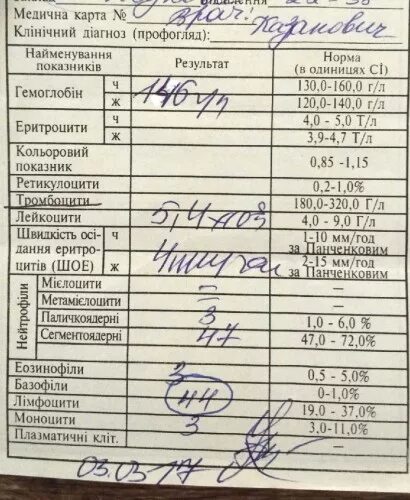 Медична карта № Врач: Казанович
Клінічний діагноз (профогляд):
Найменування показників Результат Норма (в одиницях СІ)
Гемоглобін ч 146 г/л 130,0-160,0 г/л
ж 120,0-140,0 г/л
Еритроцити ч 4,0 - 5,0 Т/л
ж 3,9-4,7 Т/л
Кольоровий показник 0,85 -1,15
Ретикулоцити 0,2-1,0%
Тромбоцити 180,0-320,0 Г/л
Лейкоцити 5,4 4,0 - 9,0 Г/л
Швидкість осідання еритроцитів (ШОЕ) ч 1-10 мм/год за Панченковим
ж 4 мм/год 2-15 мм/год за Панченковим
Нейтрофіли
Мієлоцити – –
Метамієлоцити – –
Паличкоядерні 3 1,0 - 6,0 %
Сегментоядерні 47 47,0 - 72,0%
Еозинофіли 3 0,5 - 5,0%
Базофіли 0-1,0%
Лімфоцити 44 19,0 - 37,0%
Моноцити 3 3,0-11,0%
Плазматичні кліт. –
03.03.17